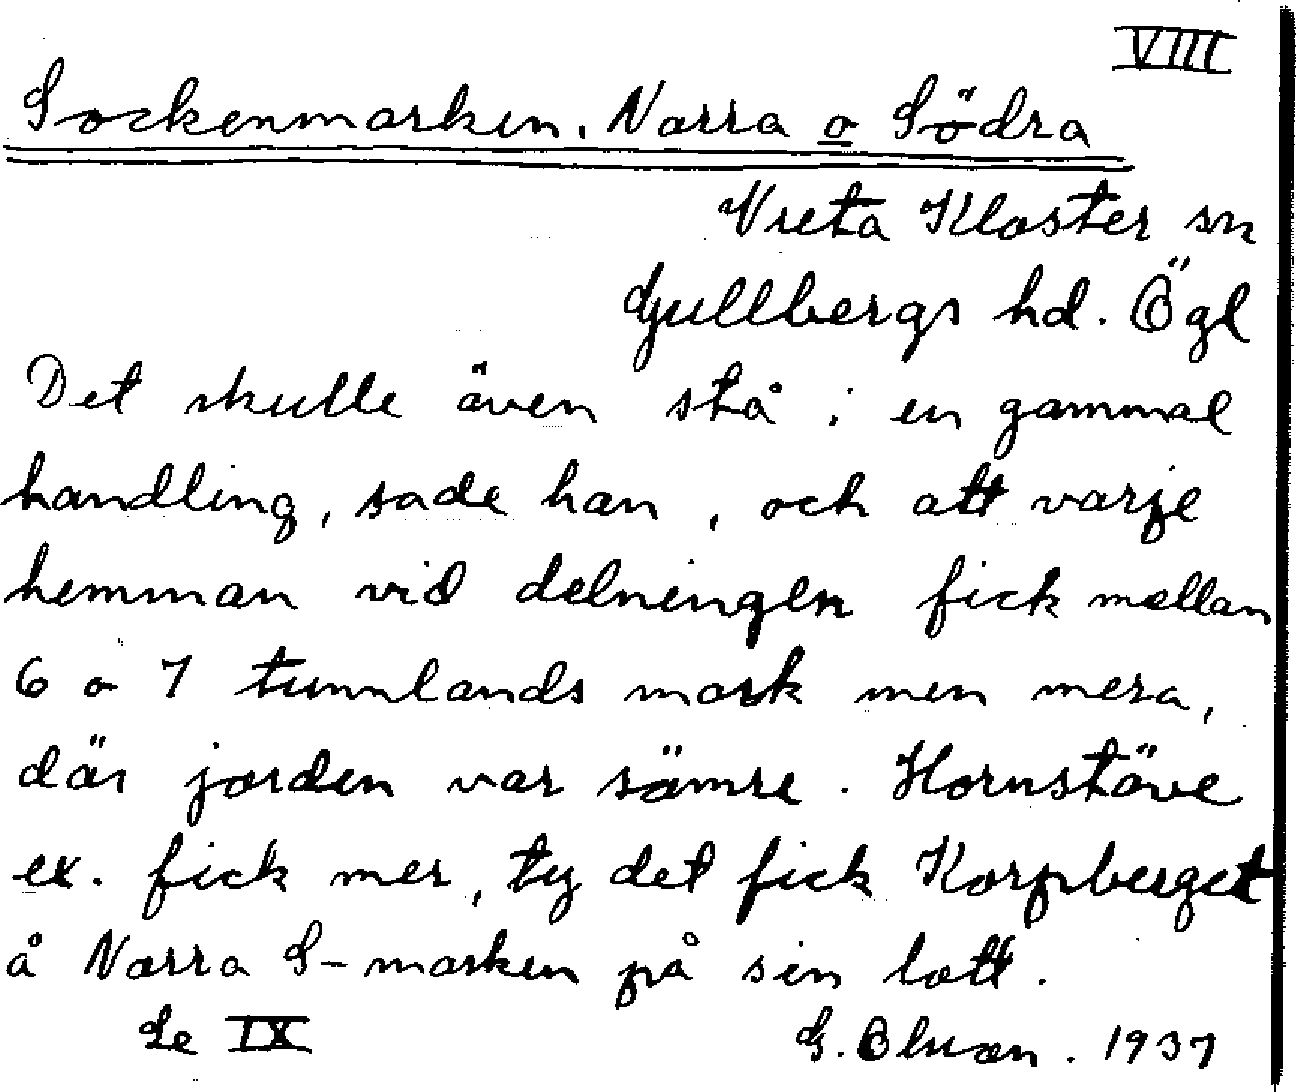 VIII
Sockenmarken. Norra o Södra
Vreta Kloster sn
Gullbergs hd. Ögl
Det skulle även stå i en gammal
handling, sade han, och att varje
hemman vid delningen fick mellan
6 o 7 tunnlands mark men mera,
där jorden var sämre. Hornstäve
ex. fick mer, ty det fick Korpberget
å Norra S-marken på sin lott.
Se IX
G. 1937